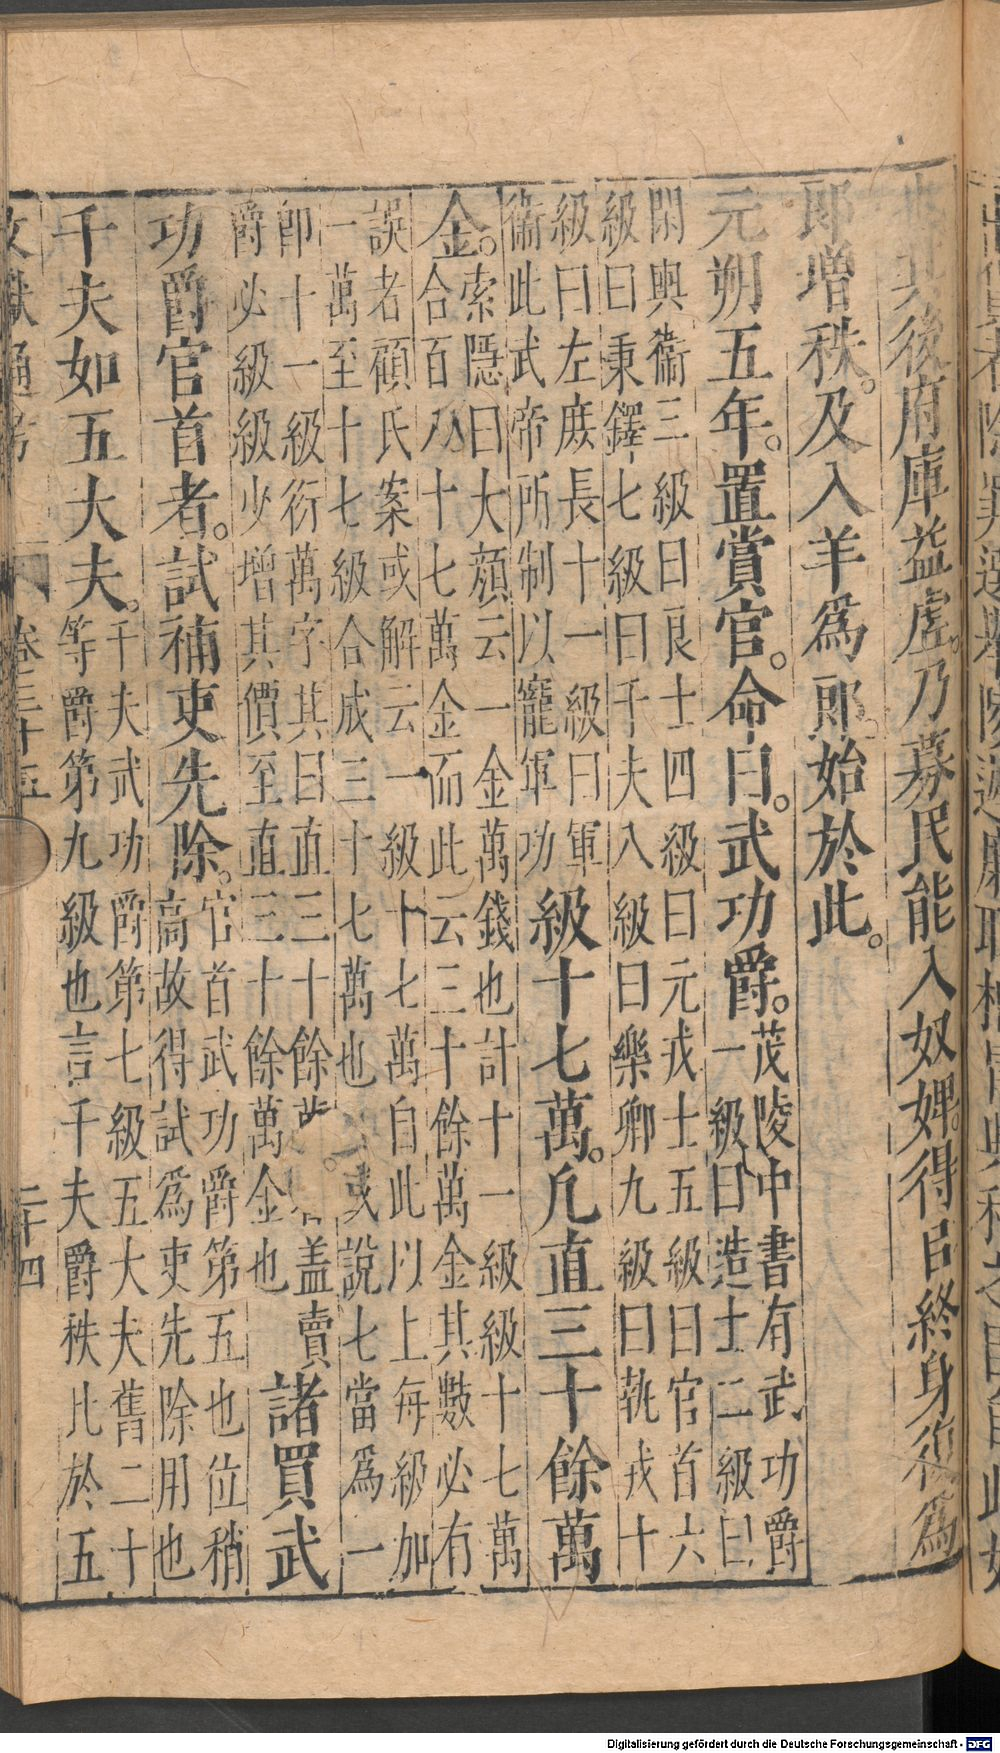 其後府庫益虛乃募民能入奴婢得以終身復為
郎增秩及入羊為郎始於此
元朔五年置賞官命曰武功爵茂陵中書有武功爵
一級曰造士二級曰
閑輿衞三級曰良士四級曰元戎士五級曰官首六
級曰秉鐸七級曰千夫八級曰樂卿九級曰執戎十
級曰左庶長十一級曰軍
衞此武帝所制以寵軍功級十七萬凡直三十餘萬
金索隱曰大顏云一金萬錢也計十一級級十七萬
合百八十七萬金而此云三十餘萬金其數必有
誤者顧氏案或解云一級十七萬自此以上每級加
一萬至十七級合成三十七萬也 或說七當為一
即十一級衍萬字其曰直三十餘 蓋賣
爵必級級少增其價至直三十餘萬金也諸買武
功爵官首者試補吏先除官首武功爵第五也位稍
高故得試為吏先除用也
千夫如五大夫千夫武功爵第七級五大夫舊二十
等爵第九級也言千夫爵秩比於五
文獻通考 卷三十五 二十四
Digitalisierung gefördert durch die Deutsche Forschungsgemeinschaft - DFG